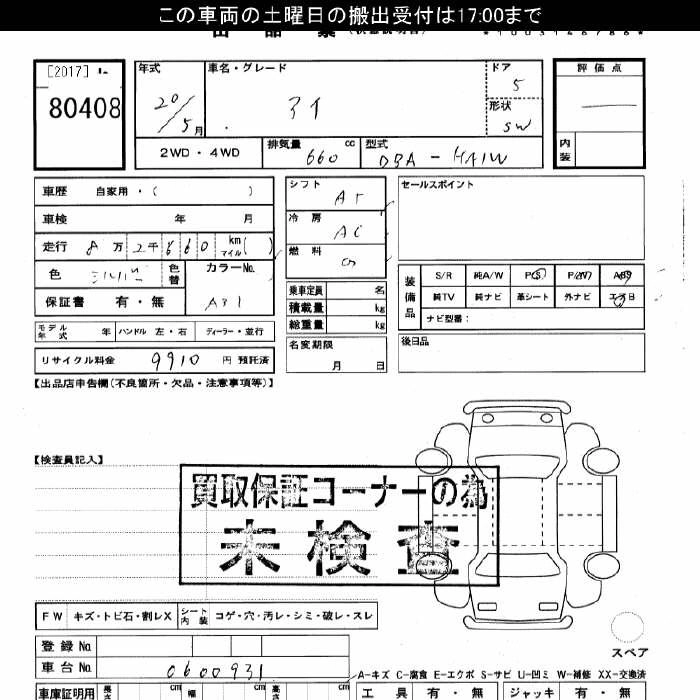 この車両の土曜日の搬出受付は17:00まで
[2017]
80408
年式
20/5月
車名・グレード
アイ
ドア
5
形状
SW
評価点
内装
2WD・4WD
排気量 660 cc
型式 DBA-HA1W
車歴 自家用・( )
車検 年 月
走行 8万2千660 km マイル( )
色 シルバー 色替
カラーNo. A31
保証書 有・無
モデル年式 年 ハンドル 左・右 ディーラー・並行
リサイクル料金 9910 円 預託済
シフト AT
冷房 AC
燃料
乗車定員 名
積載量 kg
総重量 kg
名変期限 月 日
セールスポイント
装備品
S/R 純A/W P(S) P/W ABS
純TV 純ナビ 革シート 外ナビ エアB
ナビ型番:
後日品
【出品店申告欄(不良箇所・欠品・注意事項等)】
【検査員記入】
買取保証コーナーの為
未検査
FW キズ・トビ石・割レX シート内装 コゲ・穴・汚レ・シミ・破レ・スレ
スペア
登録No.
車台No. 0600931
A-キズ C-腐食 E-エクボ S-サビ U-凹ミ W-補修 XX-交換済
車庫証明用 長さ cm 幅 cm 高さ cm
工具 有・無 ジャッキ 有・無